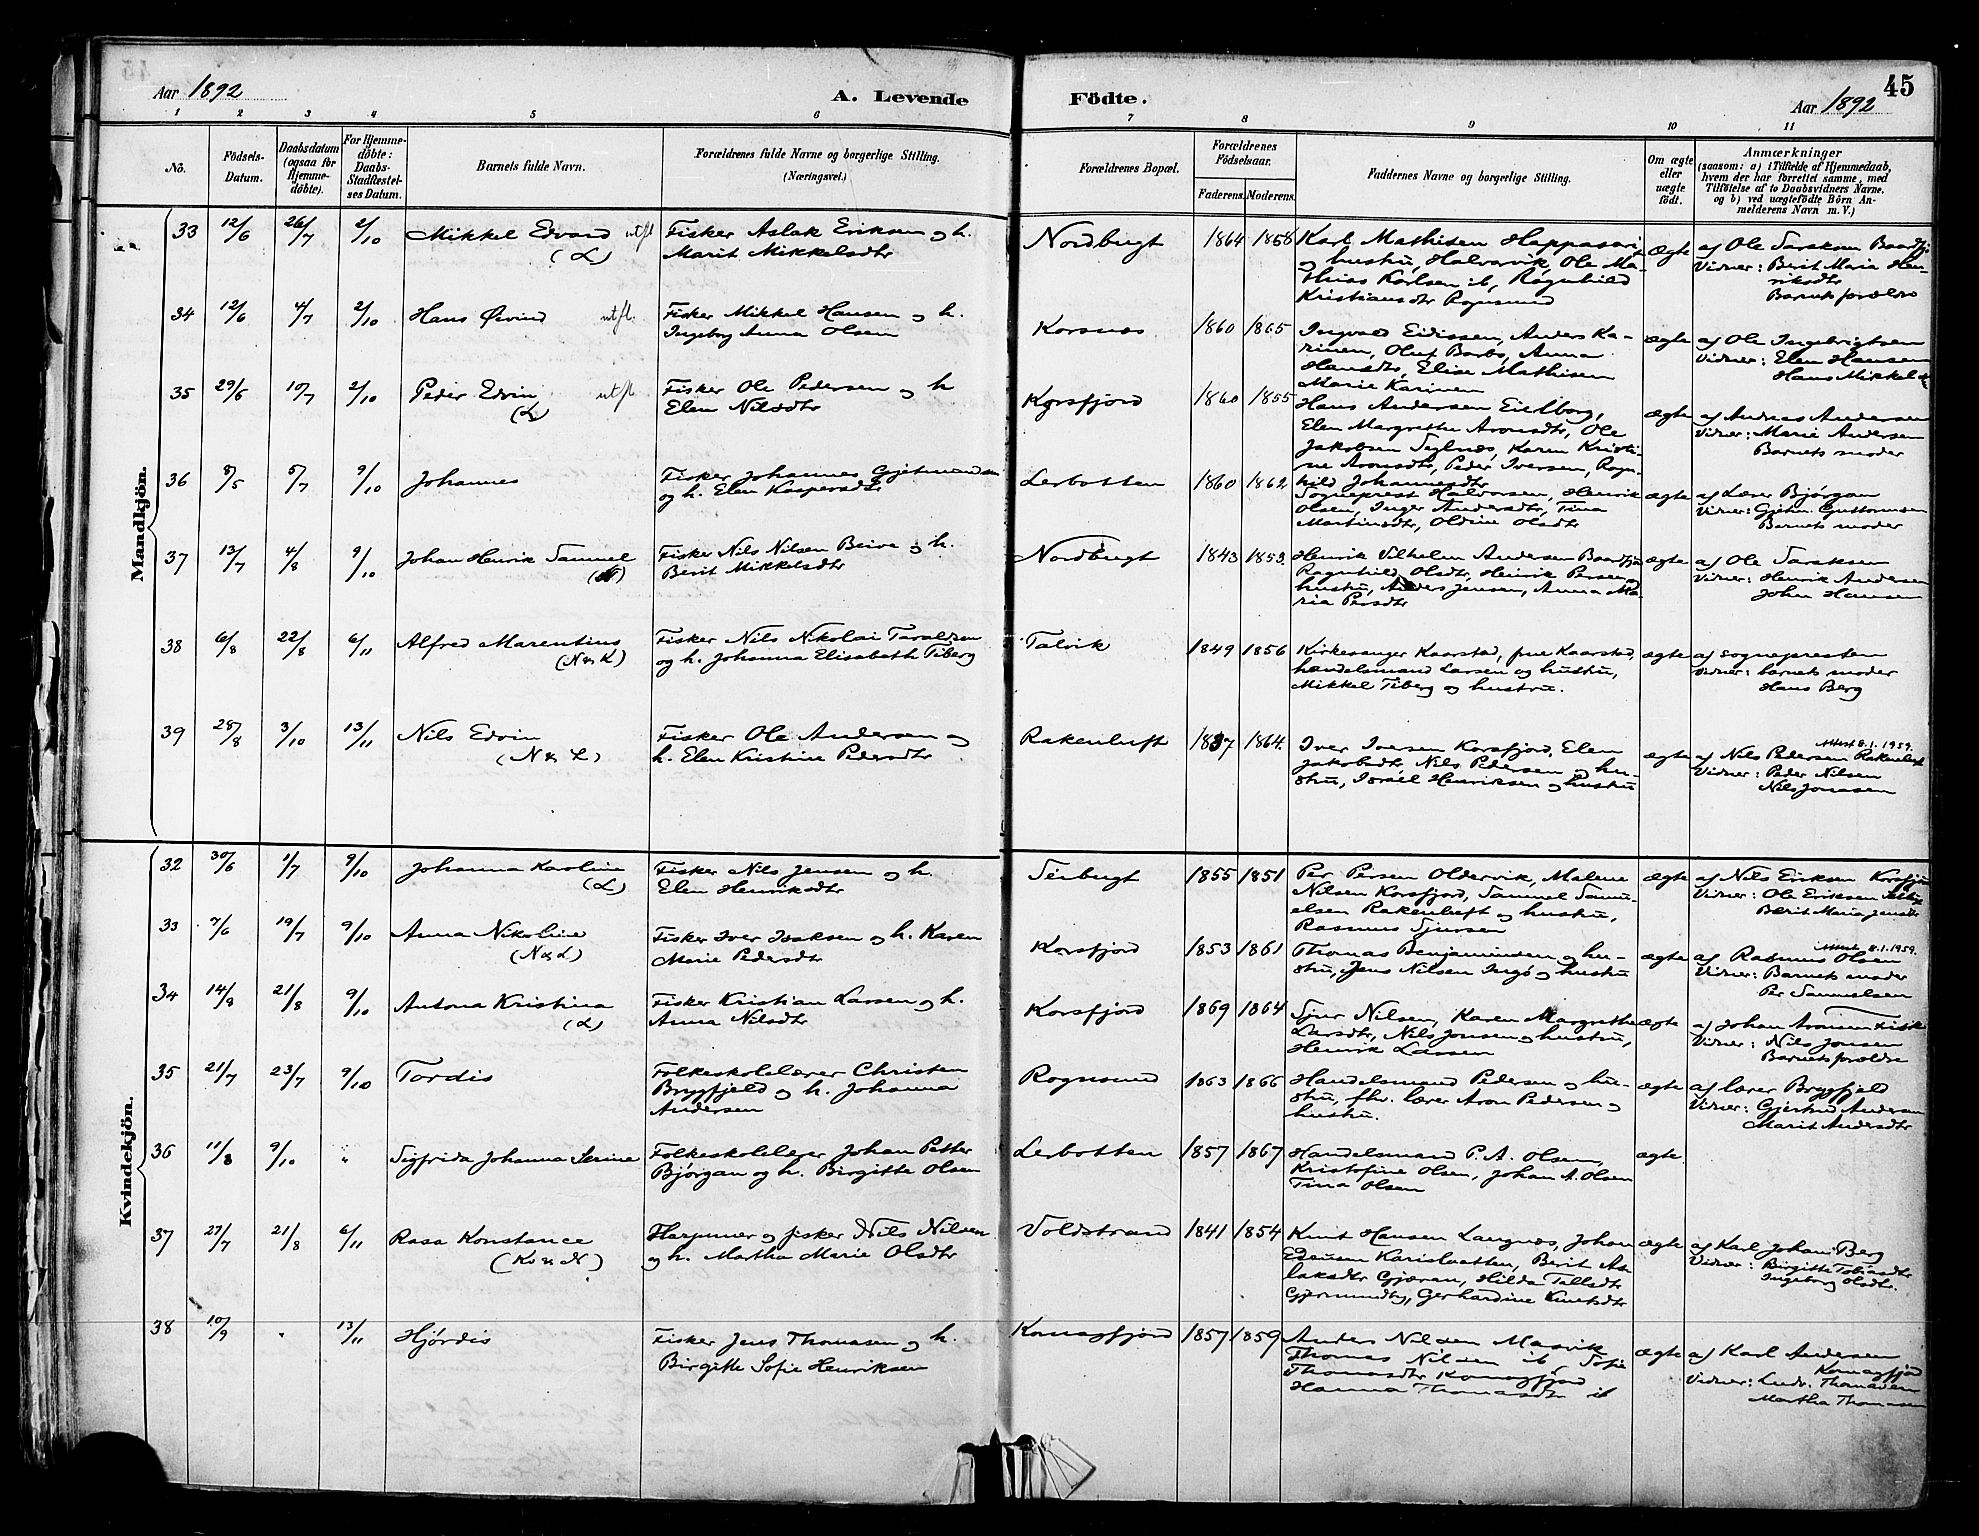 45
Aar 1892
A. Levende
Födte.
Aar 1892
1 2 3 4 5 6 7 8 9 10 11
No.
Födsels-
Datum.
Daabsdatum
(ogsaa for
Hjemme-
döbte).
For Hjemme-
döbte:
Daabs-
Stadfæstel-
ses Datum.
Barnets fulde Navn.
Forældrenes fulde Navne og borgerlige Stilling.
(Næringsvei.)
Forældrenes Bopæl.
Forældrenes
Födselsaar.
Faderens. Moderens.
Faddernes Navne og borgerlige Stilling.
Om ægte
eller
uægte
födt.
Anmærkninger
(saasom: a) i Tilfælde af Hjemmedaab,
hvem der har forrettet samme, med
Tilföielse af to Daabsvidners Navne,
og b) ved uægtefödte Börn An-
melderens Navn m. V.)
Mandkjön.
33 12/6 26/7 2/10 Mikkel Edvard utfl.
(L)
Fisker Aslak Eriksen og h.
Marit Mikkelsdtr
Nordbugt 1864 1858
Karl Mathisen Happasari
og hustru, Halvarvik, Ole Ma-
thias Karlsen ib, Ragnhild
Kristiansdtr Rognsund
ægte
af Ole Isaksen Baardfj.
Vidner: Berit Maria Hen-
riksdtr
Barnets forældre
34 12/6 4/7 2/10 Hans Øivind utfl.
Fisker Mikkel Hansen og h.
Ingeborg Anna Olsen
Korsnes 1860 1865
Ingvald Eidissen, Anders Ka-
rinen, Oluf Barbo, Anna
Hansdtr, Elise Mathisen
Marie Karinen
ægte
af Ole Ingebrigtsen
Vidner: Elen Hansen
Hans Mikkelsen
35 29/6 10/7 2/10 Peder Edvin utfl
(L)
Fisker Ole Pedersen og h
Elen Nilsdtr
Korsfjord 1860 1855
Hans Andersen Eielborg,
Elen Margrethe Aronsdtr, Ole
Jakobsen Seglnæs, Karen Kristi-
ne Aronsdtr, Peder Iversen, Ragn-
hild Johannesdtr
ægte
af Andreas Andersen
Vidner: Marie Andersen
Barnets moder
36 8/5 5/7 9/10 Johannes
Fisker Johannes Gjetmundsen
og h. Elen Kaspersdtr
Lerbotten 1860 1862
Sogneprest Halvorsen, Henrik
Olsen, Inger Andersdtr, Tina
Martinsdtr, Oldine Olsdtr
ægte
af Lærer Bjørgan
Vidner: Gjetm. Guttormsen
Barnets moder
37 13/7 4/8 9/10 Johan Henrik Samuel
(N)
Fisker Nils Nilsen Beive og h.
Berit Mikkelsdtr
Nordbugt 1843 1853.
Henrik Vilhelm Andersen Baardfj.
Ragnhild Olsdtr, Henrik Persen og
hustru, Anders Jensen, Anna Ma-
ria Persdtr
ægte
af Ole Isaksen
Vidner: Henrik Andersen
John Hansen
38 6/8 22/8 6/11 Alfred Marentius
(N & K)
Fisker Nils Nikolai Taraldsen
og h. Johanna Elisabeth Tiberg
Talvik 1849 1856
Kirkesanger Kaarstad, frue Kaarstad,
handelsmand Larsen og hustru,
Mikkel Tiberg og hustru.
ægte
af sognepresten
Vidner: barnets moder
Hans Berg
39 28/8 3/10 13/11 Nils Edvin
(N & L)
Fisker Ole Andersen og
h. Elen Kristine Pedersdtr
Rakenluft 1837 1864.
Iver Iversen Korsfjord, Elen
Jakobsdtr Nils Pedersen og hu-
stru, Israel Henriksen og hustru
ægte
Attest 8.1.1959.
af Nils Pedersen Rakenluft
Vidner: Peder Nilsen
Nils Jonassen
Kvindekjön.
32 30/6 1/7 9/10 Johanna Karoline
(L)
Fisker Nils Jensen og h.
Elen Henriksdtr
1855 1851
Per Persen Oldervik, Malene
Nilsen Korsfjord, Sammel Samu-
elsen Rakenluft og hustru,
Rasmus Sjursen
ægte
af Nils Eriksen Korsfjord
Vidner: Ole Eriksen
Berit Maria Jensdtr
33 7/6 19/7 9/10 Anna Nikoline
(N & L)
Fisker Iver Isaksen og h. Karen
Marie Pedersdtr
Korsfjord 1853 1861
Thomas Benjaminsen og hu-
stru, Jens Nilsen Ingø og hustru
ægte
Attest 8.1.1959.
af Rasmus Olsen
Vidner: Barnets moder
Per Sammelsen
34 14/8 21/8 9/10 Antona Kristina
(L)
Fisker Kristian Larsen og h.
Anna Nilsdtr
Korsfjord 1869 1864
Sjur Nilsen, Karen Margrethe
Larsdtr, Nils Jonsen og hustru,
Henrik Larsen
ægte
af Johan Aronsen Fisker
Vidner: Nils Jonsen
Barnets forældre
35 21/7 23/7 9/10 Tordis
Folkeskolelærer Christen
Bryggfjeld og h. Johanna
Andersen
Rognsund 1863 1866
Handelsmand Pedersen og hu-
stru, fhv. lærer Aron Pedersen og
hustru.
ægte
af lærer Bryggfjeld
Vidner: Gjertrud Andersen
Marit Andersdtr
36 11/8 9/10 " Sigfrida Johanna Serine
Folkeskolelærer Johan Petter
Bjørgan og h. Birgitte Olsen
Lerbotten 1857 1867
Handelsmand P. A. Olsen,
Kristofine Olsen, Johan A. Olsen
Tina Olsen
ægte
37 27/7 21/8 6/11 Rasa Konstance
(K & N)
Harpuner og fisker Nils Nilsen
og h. Martha Marie Olsdtr
Voldstrand 1841 1854
Knut Hansen Langnæs, Johan
Edensen Karislvetten, Berit As-
laksdtr Gjæren, Hilda Tellsdtr
Gjermundby, Gerhardine Knutsdtr
ægte
af Karl Johan Berg
Vidner: Birgitte Tobiasdtr
Ingeborg Olsdtr.
38 10/9 " 13/11 Hjørdis
Fisker Jens Thomassen og h.
Birgitte Sofie Henriksen
Komagfjord 1857 1859
Anders Nilsen Masvik
Thomas Nilsen ib, Sofie
Thomasdtr Komagfjord
Hanna Thomasdtr ib
ægte
af Karl Andersen
Komagfjord
Vidner: Ludv. Thomassen
Martha Thomassen